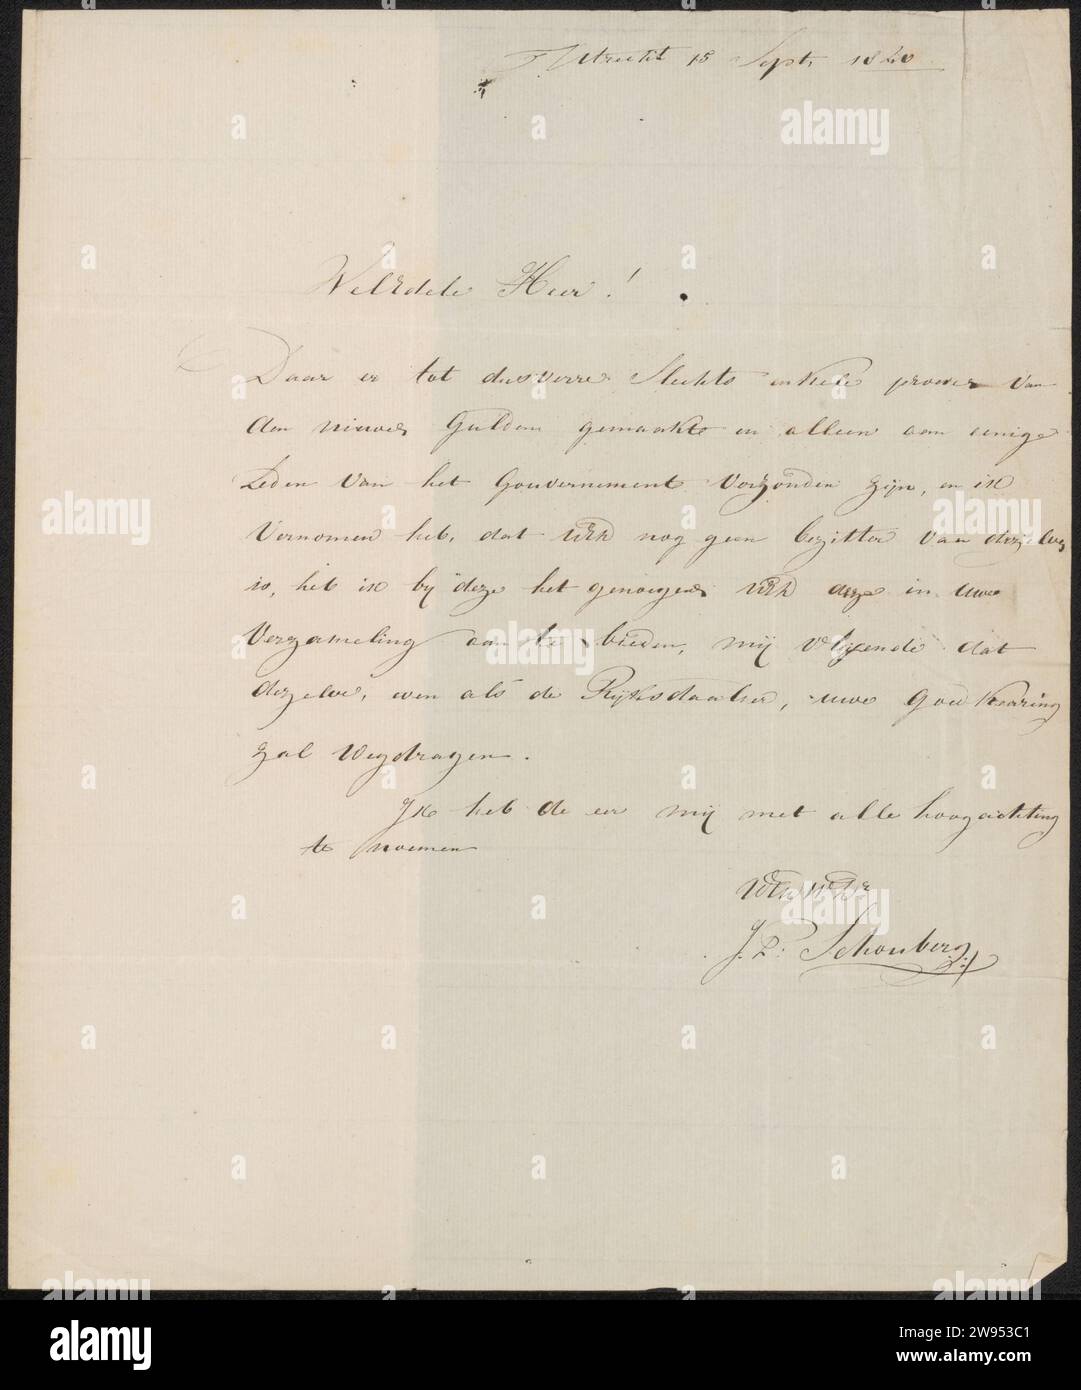 Utrecht 15 Sept. 1840
WelEdele Heer!
Daar er tot dusverre slechts enkele proeven van
den nieuwe Gulden gemaakt en alleen aan eenige
Leden van het Gouvernement verzonden zijn, en ik
vernomen heb, dat nog geen bezitter van dezelve
is, heb ik bij deze het genoegen deze in uwe
verzameling aan te bieden, mij vleijende dat
dezelve, even als de Rijksdaalder, uwe goedkearing
zal wegdragen.
Ik heb de eer mij met alle hoogachting
te noemen
J. P. Schouberg
alamy
Image ID: 2W953C1
www.alamy.com